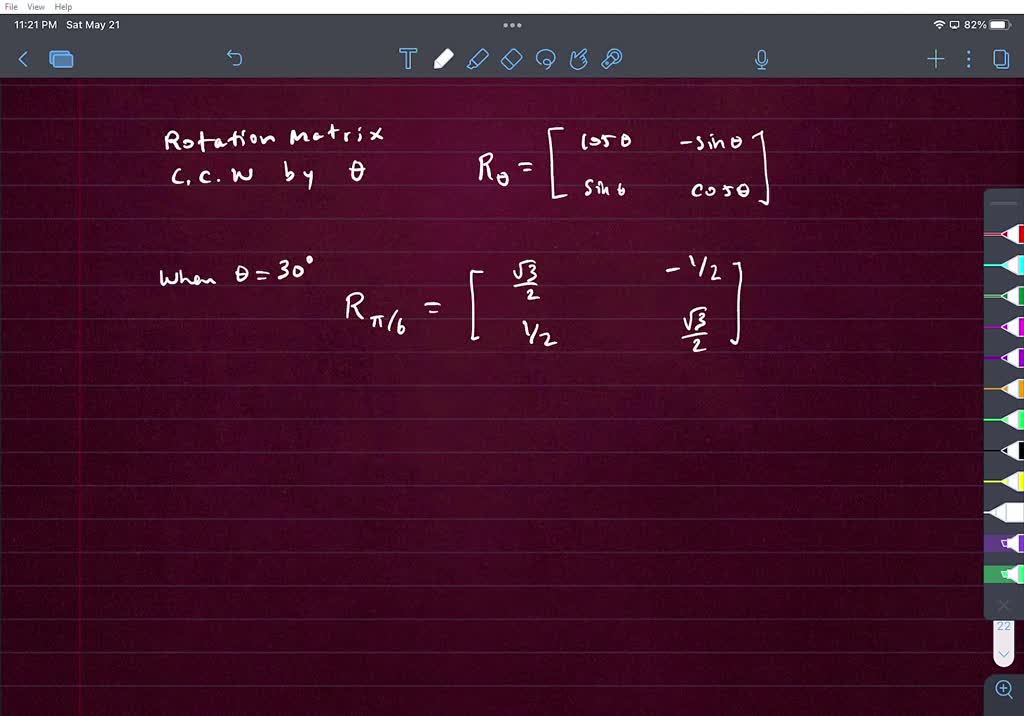 File View Help
11:21 PM Sat May 21
82%
T
Rotation Matrix
C.C.W by θ
R_θ = [ cos θ -sin θ
sin θ cos θ ]
When θ = 30°
R_π/6 = [ √3/2 -1/2
1/2 √3/2 ]
22